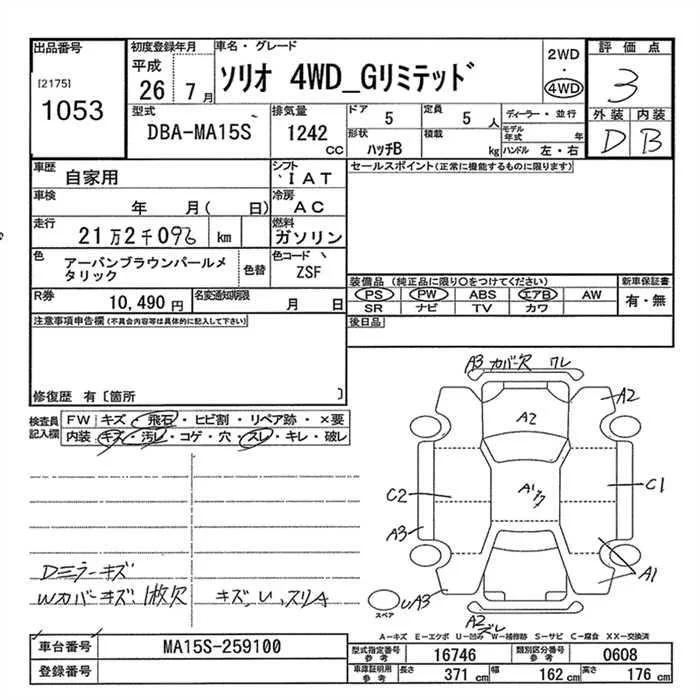 出品番号 初度登録年月 車名・グレード 2WD 評価点
[2175] 平成 ・
1053 26 7月 ソリオ 4WD_Gリミテッド 4WD 3
型式 排気量 ドア 定員 ディーラー・並行 外装 内装
DBA-MA15S 1242 CC 5 5 人 モデル年式 年 D B
形状 積載
ハッチB kg ハンドル 左・右
車歴 自家用 シフト IAT セールスポイント(正常に機能するものに限ります)
車検 年 月( 日) 冷房 AC
走行 21万2千096 km 燃料 ガソリン
色 アーバンブラウンパールメタリック 色替 色コード ZSF
装備品 (純正品に限り○をつけてください) 新車保証書
PS PW ABS エアB AW 有・無
SR ナビ TV カワ
R券 10,490円 名変通知期限 月 日
注意事項申告欄(不具合内容等は具体的に記入して下さい) 後日品
修復歴 有〔箇所 〕
検査員記入欄 FW キズ・飛石・ヒビ割・リペア跡・×要
内装 キズ・汚レ・コゲ・穴・スレ・キレ・破レ
A3 カバー欠 ワレ
A2
A2
C2 A1 C1
A3
A1
Dミラーキズ
Wカバーキズ、1枚欠 キズ、U、スリA
スペア UA3
A2 ズレ
A-キズ E-エクボ U-凹み W-補修跡 S-サビ C-腐食 XX-交換済
車台番号 MA15S-259100 型式指定番号 参考 16746 類別区分番号 参考 0608
登録番号 車庫証明用 参考 長さ 371 cm 幅 162 cm 高さ 176 cm